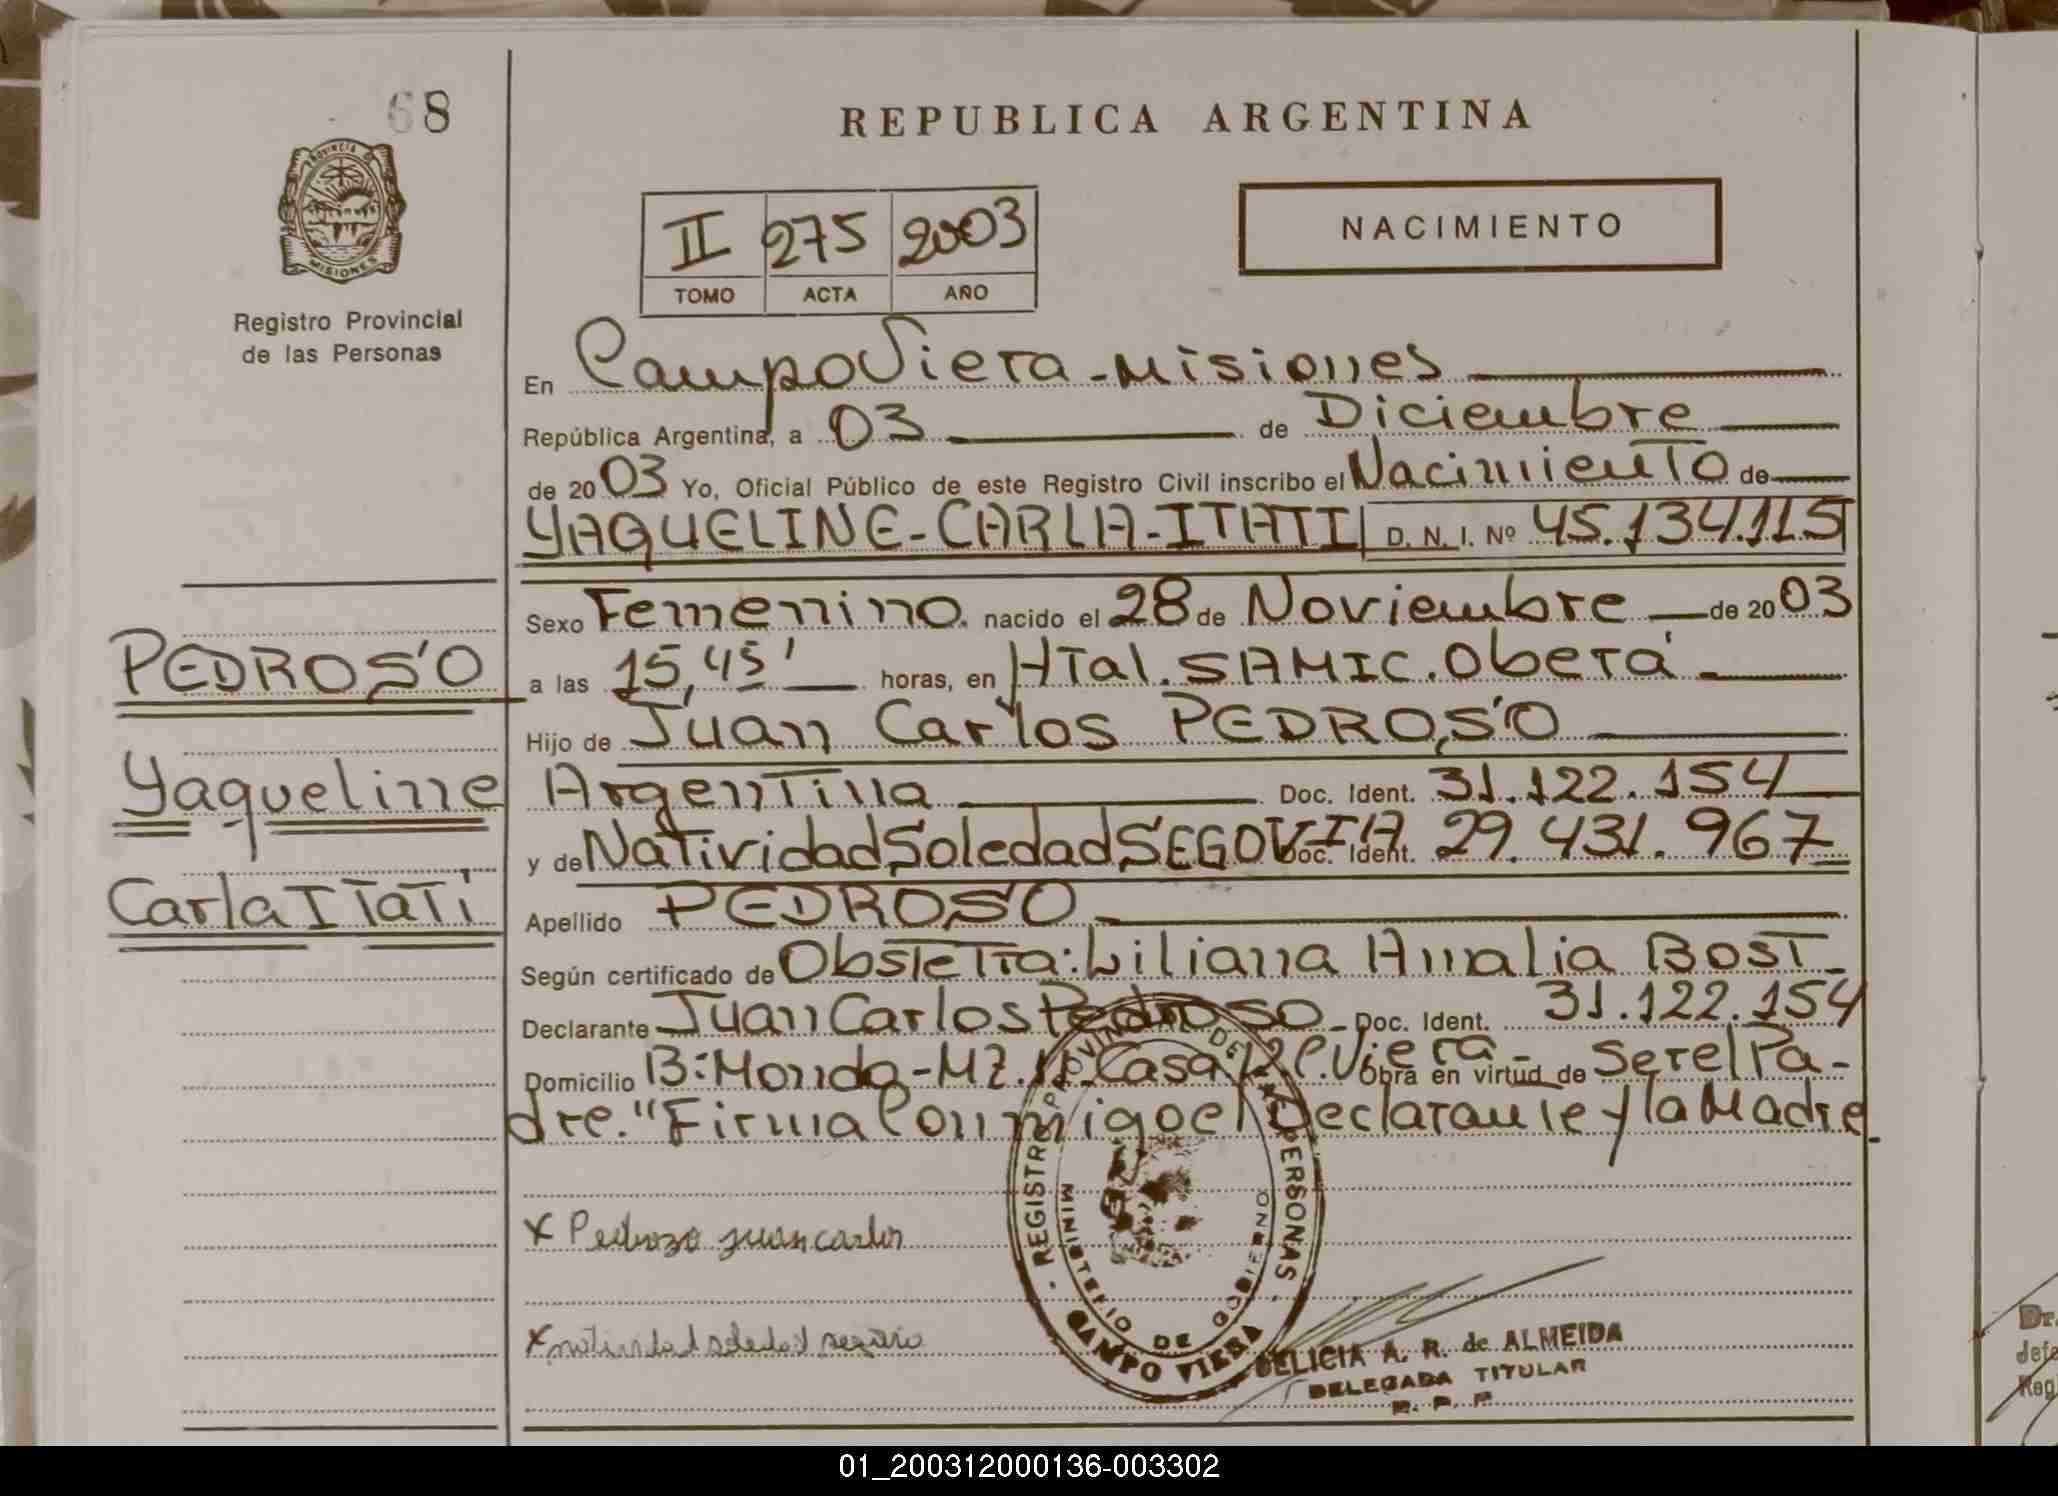 68
REPUBLICA ARGENTINA
PROVINCIA D
MISIONES
Registro Provincial
de las Personas
II 275 2003
TOMO ACTA AÑO
NACIMIENTO
En Campo Viera - Misiones
República Argentina, a 03 de Diciembre
de 2003 Yo, Oficial Público de este Registro Civil inscribo el Nacimiento de
YAQUELINE-CARLA-ITATI D. N. I. Nº 45.134.115
Sexo Femenino. nacido el 28 de Noviembre de 2003
PEDROSO
a las 15,45' horas, en Htal. SAMIC. Oberá
Hijo de Juan Carlos PEDROSO
Yaqueline
Argentina Doc. Ident. 31.122.154
y de Natividad Soledad SEGOVIA Doc. Ident. 29.431.967
Carla Itati
Apellido PEDROSO
Según certificado de Obstetra: Liliana Amalia BOST-
Declarante Juan Carlos Pedroso - Doc. Ident. 31.122.154
Domicilio B: Monda - MZ. Casa C. Viera - Obra en virtud de Ser el Pa-
dre. "Firma Conmigo el Declarante y la Madre
REGISTRO PROVINCIAL DE LAS PERSONAS
MINISTERIO DE GOBIERNO
CAMPO VIERA
x Pedrozo juan carlos
x natividad soledad
DELICIA A. R. de ALMEIDA
DELEGADA TITULAR
R. P. P
Dr.
Jefe
Reg
01_200312000136-003302